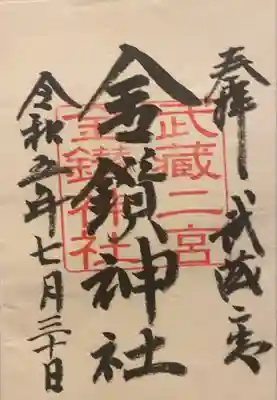 奉拝
武蔵二宮
金鑚神社
令和五年七月三十日
武蔵二宮
金鑚神社